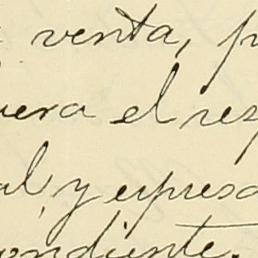 venta, p
era el res
al y expresa
ondiente.